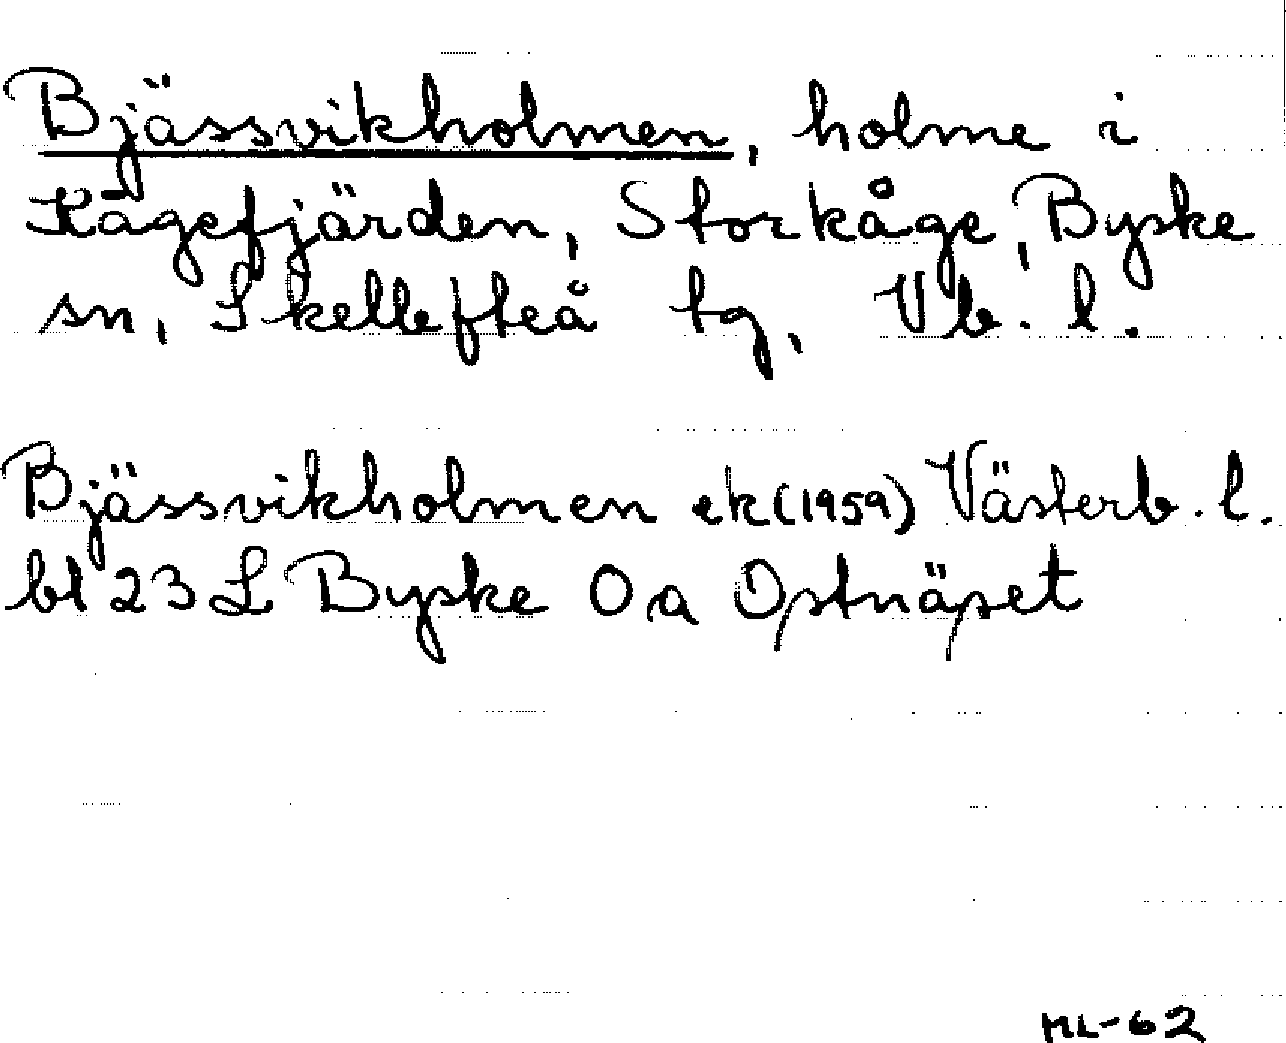 Bjässvikholmen, holme i
Kågefjärden, Storkåge, Byske
sn, Skellefteå tg, Vb. l.
Bjässvikholmen ek(1959) Västerb. l.
bl 23 L Byske Oa Ostnäset
ML-62